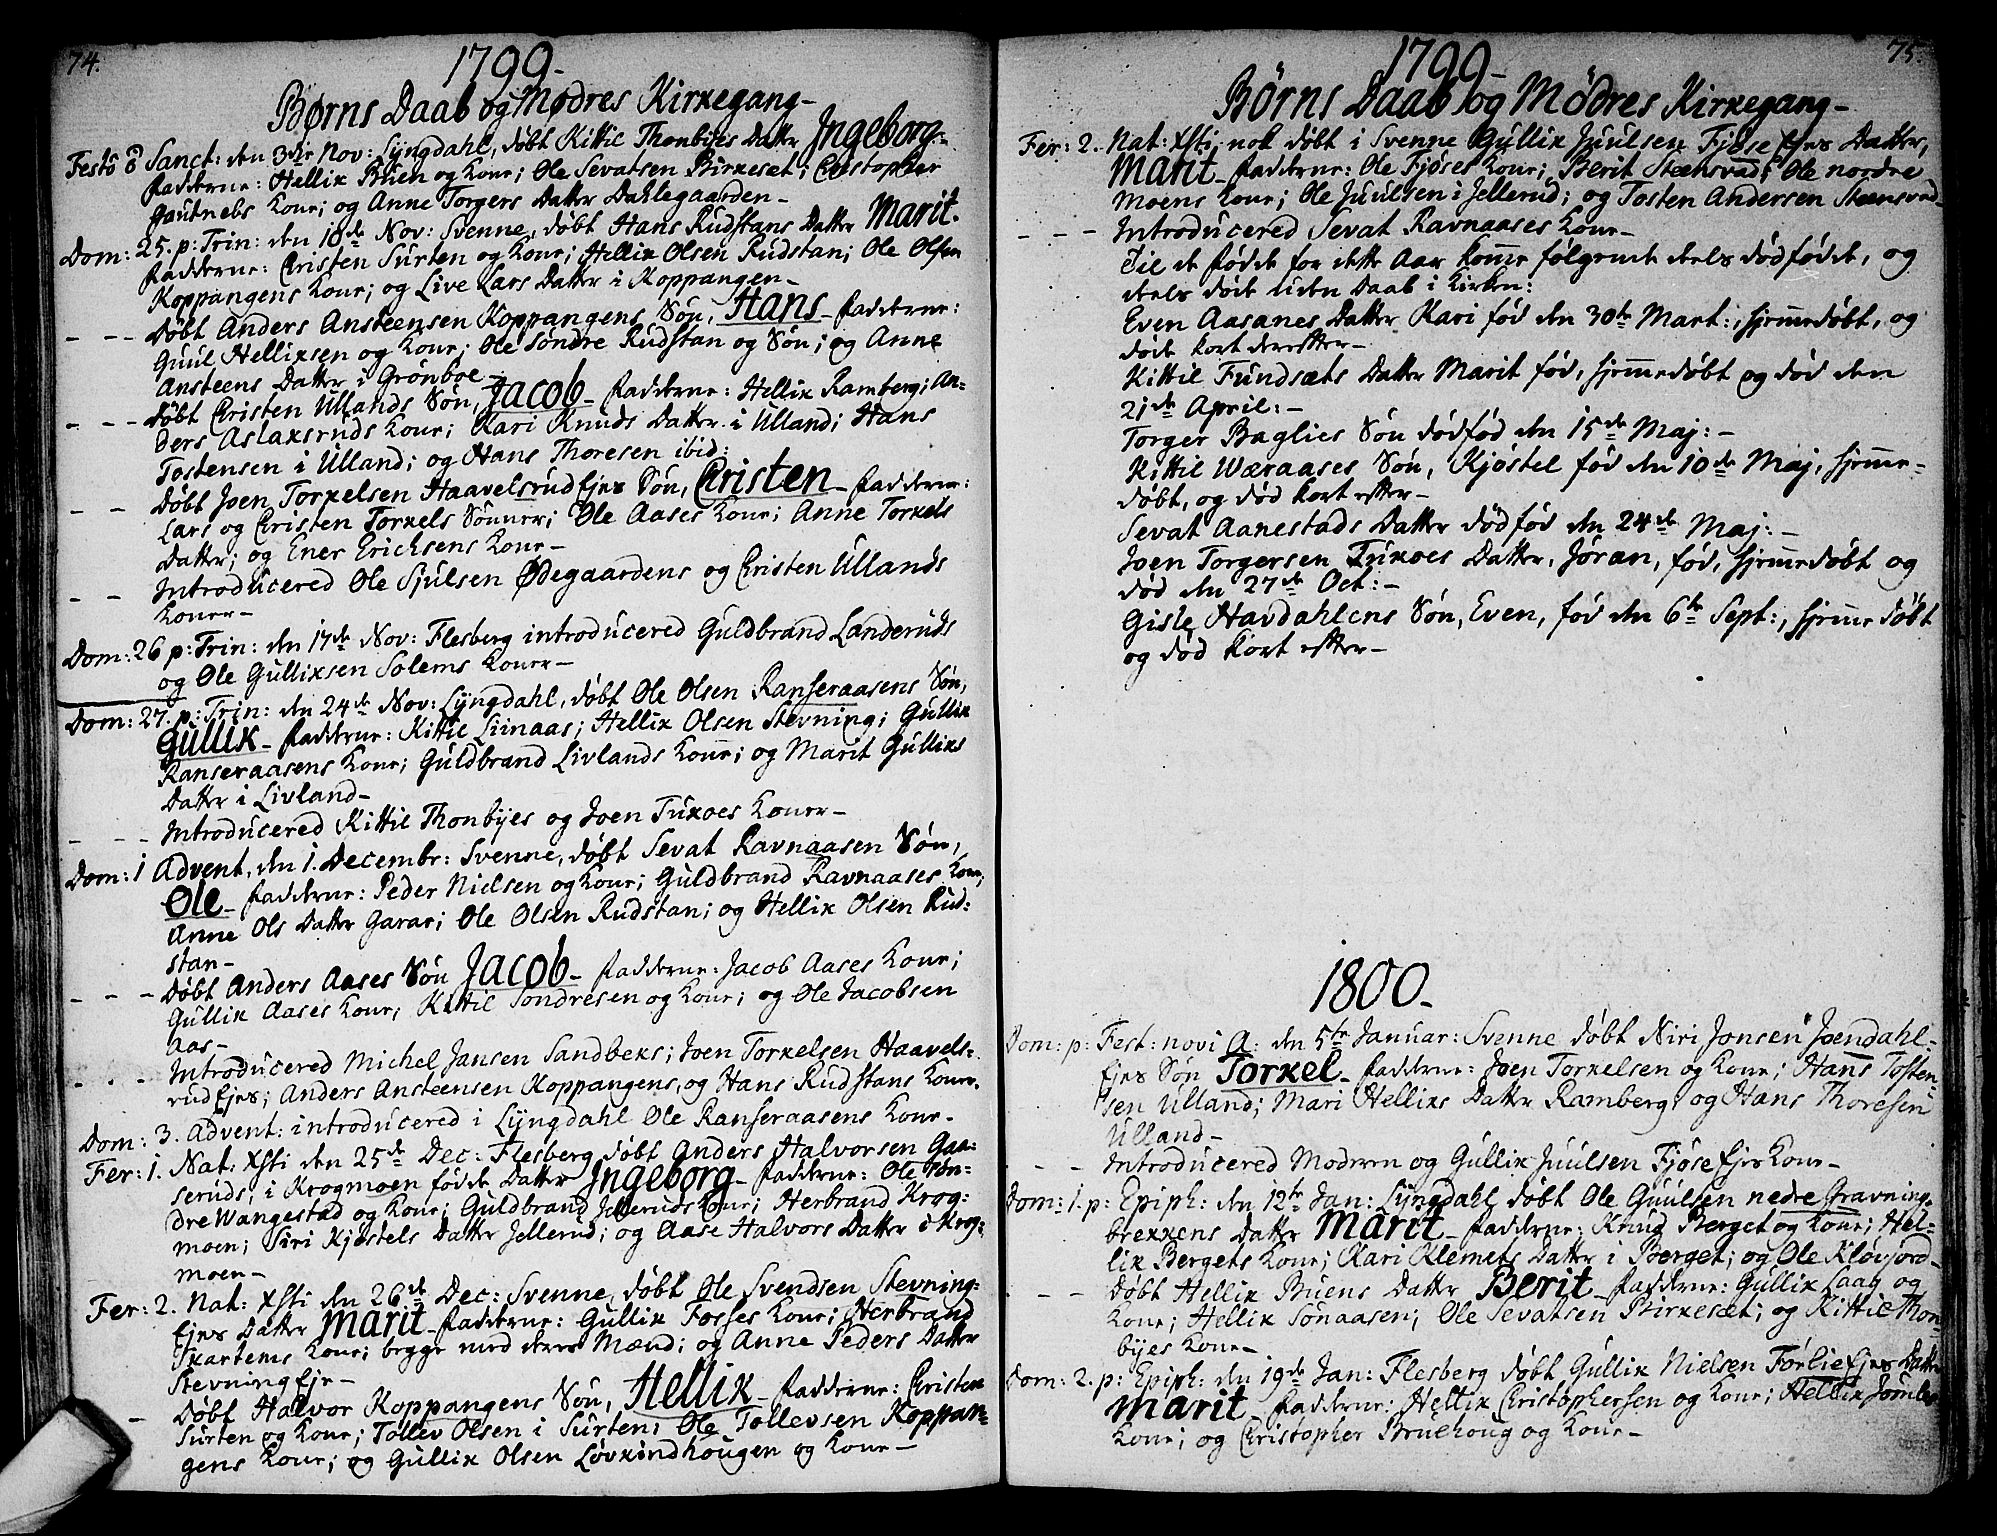 74.
1799-
Børns Daab og Mødres Kirkegang-
Festo O Sanct: den 3die Nov: Lyngdahl, døbt Kittil Thonbyes Datter Ingeborg-
Fadderne: Hellik Buen og Kone; Ole Sevatsen Birkeset; Christopher
Gautnebs Kone; og Anne Torgers Datter Dahlegaarden-
Dom: 25. p: Trin: den 10de Nov: Svenne, døbt Hans Rudstans Datter Marit.
Fadderne: Christen Surten og Kone; Hellik Olsen Rudstan; Ole Olsen
Koppangens Kone; og Live Lars Datter i Koppangen-
- - - Døbt Anders Ansteensen Koppangens Søn, Hans- Fadderne:
Guul Helliksen og Kone; Ole Søndre Rudstan og Søn; og Anne
Ansteens Datter i Grønboe-
- - - Døbt Cristen Ullands Søn, Jacob- Fadderne: Hellik Ramberg; An-
ders Aslaksruds Kone; Kari Knuds Datter i Ulland; Hans
Tostensen i Ulland; og Hans Thoresen ibid:
- - Døbt Joen Torkelsen Haavelsrud Ejes Søn, Cristen- Fadderne:
Lars og Cristen Torkels Sønner; Ole Aases Kone; Anne Torkels
Datter; og Ener Ericksens Kone-
- - Introducered Ole Sjulsen Ødegaardens og Cristen Ullands
Koner-
Dom: 26 p: Trin: den 17de Nov: Flesberg introducered Guldbrand Landeruds
og Ole Gulliksen Solems Koner-
Dom: 27. p: Trin: den 24de Nov: Lyngdahl, døbt Ole Olsen Ranseraasens Søn,
Gullik- Fadderne: Kittil Liinaas; Hellik Olsen Stevning; Gullik
Ranseraasens Kone; Guldbrand Livlands Kone; og Marit Gulliks
Datter i Livland-
- - - Introducered Kittil Thonbyes og Joen Tukoes Koner-
Dom: 1 Advent, den 1. Decembr: Svenne, døbt Sevat Ravnaasen Søn,
Ole- Fadderne: Peder Nielsen og Kone; Guldbrand Ravnaases Kone,
Anne Ols Datter Garar; Ole Olsen Rudstan; og Hellik Olsen Rud-
stan-
- - - Døbt Anders Aases Søn Jacob- Fadderne: Jacob Aases Kone;
Gullik Aases Kone; Kittil Søndresen og Kone; og Ole Jacobsen
Aas-
- - - Introducered Michel Jansen Sandbeks; Joen Torkelsen Haavels-
rud Ejes; Anders Ansteensen Koppangens, og Hans Rudstans Koner.
Dom: 3. Advent: introducered i Lyngdahl Ole Ranseraasens Kone-
Fer: 1. Nat: Xsti den 25de Dec: Flesberg døbt Anders Halvorsen Gaa-
seruds, i Krogmoen fødde Datter Ingeborg- Fadderne: Ole Søn-
dre Wangestad og Kone; Guldbrand Jelleruds Kone; Herbrand Krog-
moen; Siri Kjøstels Datter Jellerud; og Aase Halvors Datter i Krog-
moen-
Fer: 2. Nat: Xsti den 26de Dec: Svenne, døbt Ole Svendsen Stevning-
Ejes Datter Marit- Fadderne: Gullik Fosses Kone; Herbrand
Skartems Kone; begge med deres Mænd; og Anne Peders Datter
Stevning Eje-
- Døbt Halvor Koppangens Søn, Hellik- Fadderne: Cristen
Surten og Kone; Tollev Olsen i Surten; Ole Tollevsen Koppan-
gens Kone; og Gullik Olsen Løvkindhougen og Kone-
75.
1799-
Børns Daab og Mødres Kirkegang-
Fer: 2. Nat: Xsti, nok døbt i Svenne Gullik Juulsen Fjøse Ejes Datter,
Marit- Fadderne: Ole Fjøses Kone; Berit Steensvad; Ole nordre
Moens Kone; Ole Juulsen i Jellerud; og Tosten Andersen Steensvad
- - - Introducered Sevat Ravnaases Kone-
Til de fødde for dette Aar komme følgende deels dødfødde, og
deels døde uden Daab i Kirken:
Even Aasanes Datter Kari fød den 30te Mart:, hjemmedøbt, og
døde kort derefter-
Kittil Fundsæts Datter Marit fød, hjemmedøbt og død den
21de April:-
Torger Baglies Søn dødfød den 15de Maj:-
Kittil Wæraases Søn, Kjøstel fød den 10de Maj, hjemme-
døbt, og død kort efter-
Sevat Aanestads Datter dødfød den 24de Maj:-
Joen Torgersen Tukoes Datter, Jøran, fød, hjemmedøbt og
død den 27de Oct:-
Gisle Havdahlens Søn, Even, fød den 6te Sept:, hjemmedøbt
og død kort efter-
1800-
Dom: p: Fest: novi A: den 5te Januar: Svenne døbt Niri Jonsen Joendahl-
Ejes Søn Torkel- Fadderne: Joen Torkelsen og Kone; Hans Tosten-
sen Ulland; Mari Helliks Datter Ramberg; og Hans Thoresen
Ulland-
- - Introducered Moderen og Gullik Juulsen Fjøse Ejes Kone-
Dom: 1. p: Epiph: den 12te Jan: Lyngdahl døbt Ole Guulsen nedre Gravning-
brekkens Datter Marit- Fadderne: Knud Berget og Kone; Hel-
lik Bergets Kone; Kari Klemets Datter i Berget; og Ole Kløvfjord-
- - - Døbt Hellik Buens Datter Berit- Fadderne: Gullik Laag og
Kone; Hellik Sønaasen; Ole Sevatsen Birkesæt; og Kittil Thon-
byes Kone-
Dom: 2. p: Epiph: den 19de Jan: Flesberg døbt Gullik Nielsen Førlie Ejes Datter
Marit- Fadderne: Hellik Christophersen og Kone; Hellik
Kone; og Christopher Bruehoug og Kone-